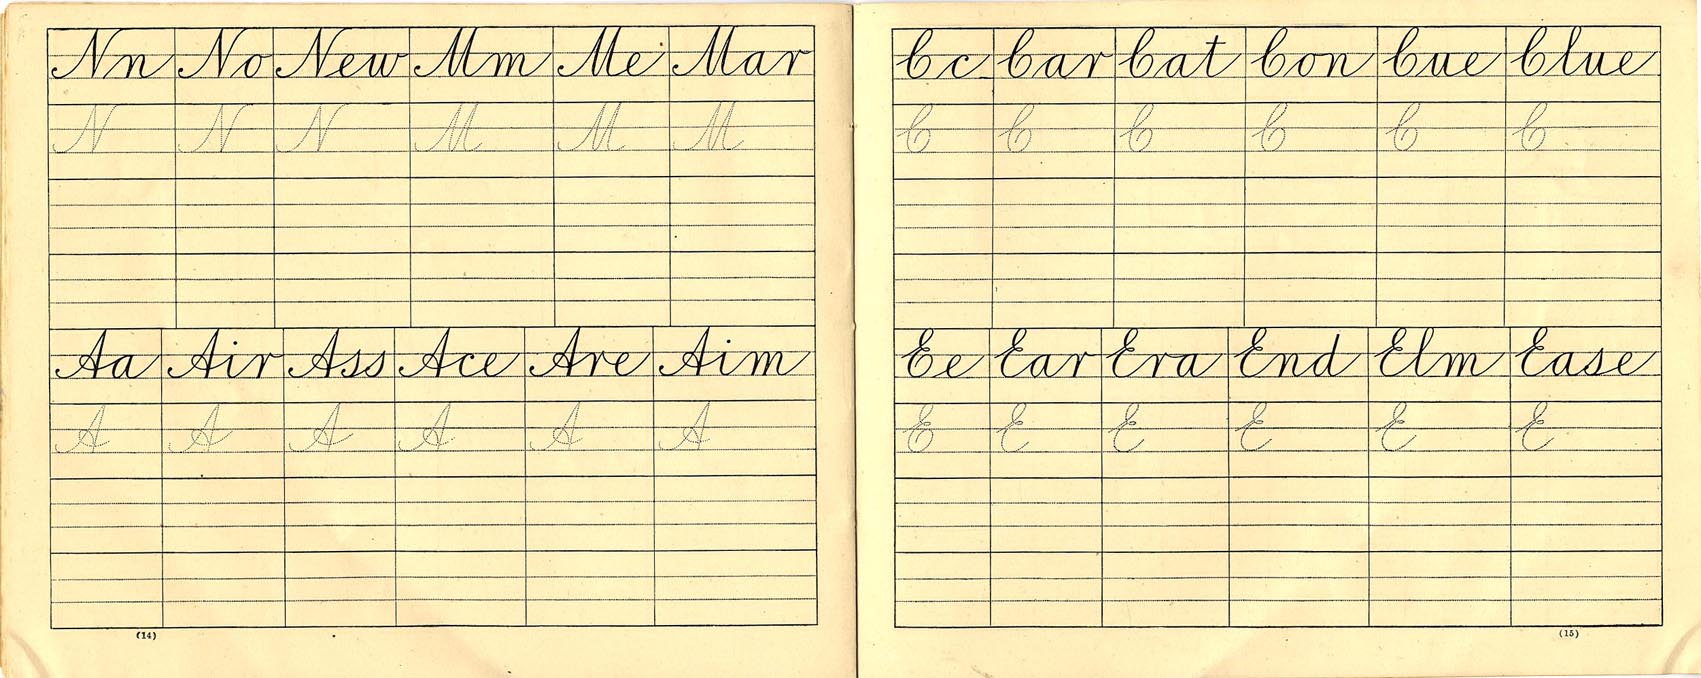 Nn No New Mm Me Mar
N N N M M M
Aa Air Ass Ace Are Aim
A A A A A A
(14)
Cc Car Cat Con Cue Clue
C C C C C C
Ee Ear Era End Elm Ease
E E E E E E
(15)